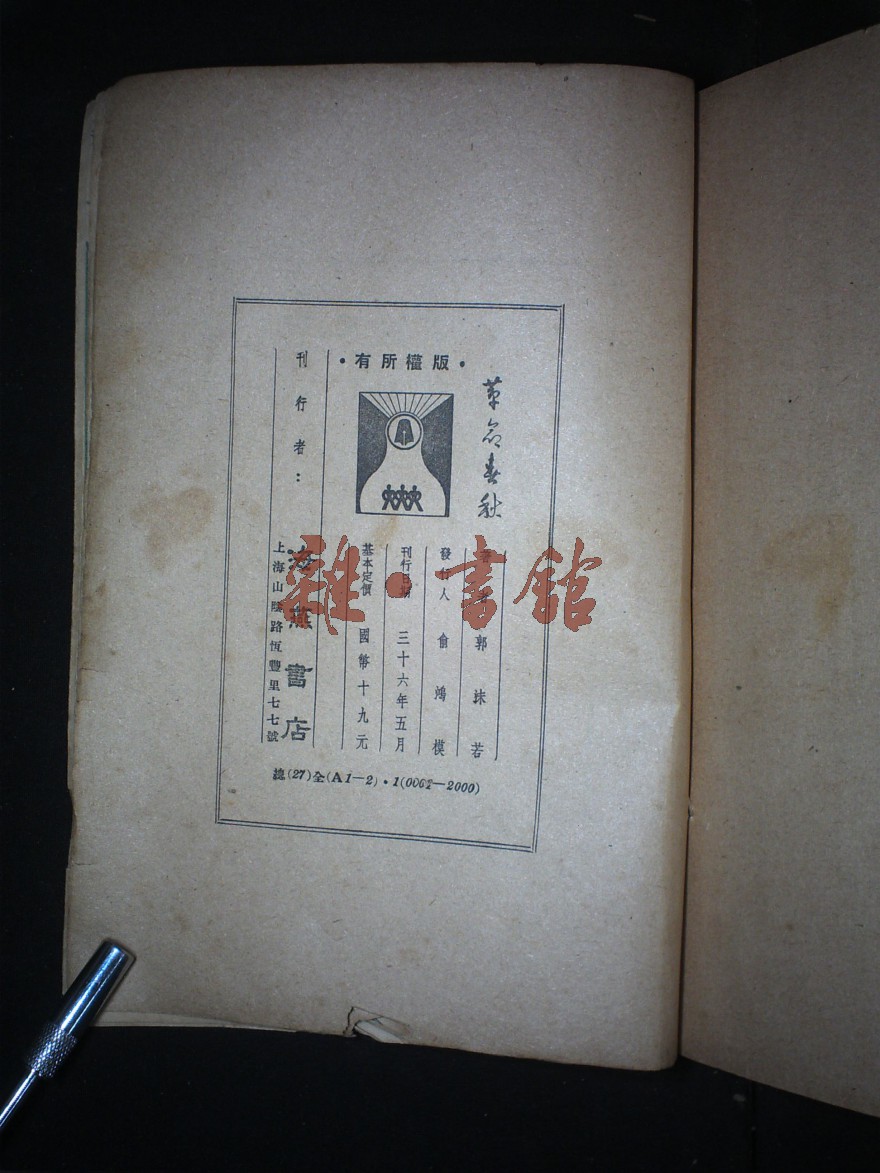 革命春秋
·版權所有·
著者 郭沫若
發行人 俞鴻模
刊行日期 三十六年五月
基本定價 國幣十九元
刊行者：
海燕書店
上海山陰路恆豐里七七號
總(27)全(A1—2)·1(0061—2000)
雜·書館